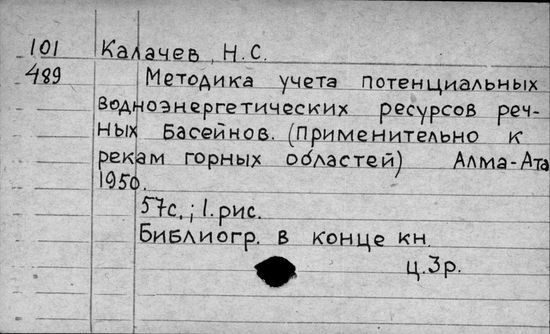 101 Калачев, Н.С.
489 Методика учета потенциальных
водноэнергетических ресурсов реч-
ных басейнов. (Применительно к
рекам горных областей) Алма-Ата
1950.
57с.; 1.рис.
Библиогр. в конце кн.
ц.3р.